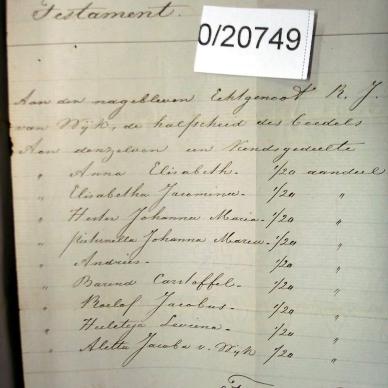 Testament.
0/20749
Aan den nagebleven Echtgenoot R. J.
van Wijk, de halfscheid des Boedels
Aan denzelven een Kindsgedeelte
" Anna Elisabeth - 1/20 aandeel
" Elisabetha Jacomina - 1/20 "
" Hester Johanna Maria - 1/20 "
" Pieternella Johanna Maria - 1/20 "
" Andries - 1/20 "
" Barend Carstoffel - 1/20 "
" Roelof Jacobus - 1/20 "
" Heiletje Levina - 1/20 "
" Aletta Jacoba v. Wijk 1/20 "